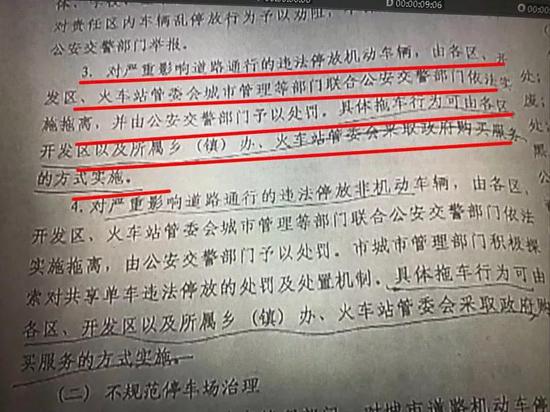 D 00:00:09:06
对责任区内车辆乱停放行为予以劝阻
公安交警部门举报。
3. 对严重影响道路通行的违法停放机动车辆，由各区、开
发区、火车站管委会城市管理等部门联合公安交警部门依法实
施拖离，并由公安交警部门予以处罚。具体拖车行为可由各区
开发区以及所属乡（镇）办、火车站管委会采取政府购买服务
的方式实施。
4. 对严重影响道路通行的违法停放非机动车辆，由各区、
开发区、火车站管委会城市管理等部门联合公安交警部门依法
实施拖离，由公安交警部门予以处罚。市城市管理部门积极探
索对共享单车违法停放的处罚及处置机制。具体拖车行为可由
各区、开发区以及所属乡（镇）办、火车站管委会采取政府购
买服务的方式实施。
（二）不规范停车场治理
对城市道路机动车停